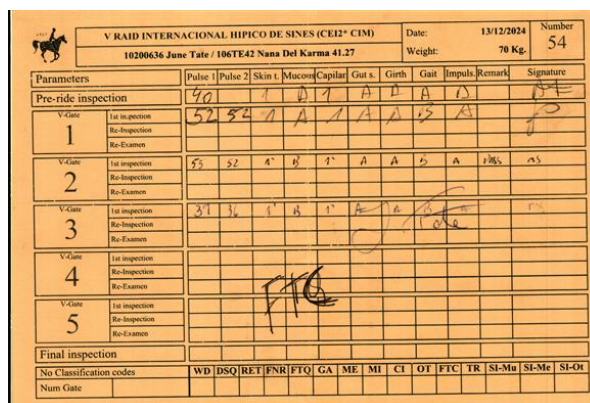 V RAID INTERNACIONAL HIPICO DE SINES (CEI2* CIM) Date: 13/12/2024 Number
10200636 June Tate / 106TE42 Nana Del Karma 41.27 Weight: 70 Kg. 54
Parameters Pulse 1 Pulse 2 Skin t. Mucous Capilar Gut s. Girth Gait Impuls. Remark Signature
Pre-ride inspection 40 1 A 1 A A A A
V-Gate 1st inspection 52 52 1 A 1 A A B A
1 Re-Inspection
Re-Examen
V-Gate 1st inspection 55 52 1" B 1" A A B A
2 Re-Inspection
Re-Examen
V-Gate 1st inspection 37 36 1" B 1" A A B A
3 Re-Inspection
Re-Examen
V-Gate 1st inspection
4 Re-Inspection
Re-Examen
FTC
V-Gate 1st inspection
5 Re-Inspection
Re-Examen
Final inspection
No Classification codes WD DSQ RET FNR FTQ GA ME MI CI OT FTC TR SI-Mu SI-Me SI-Ot
Num Gate